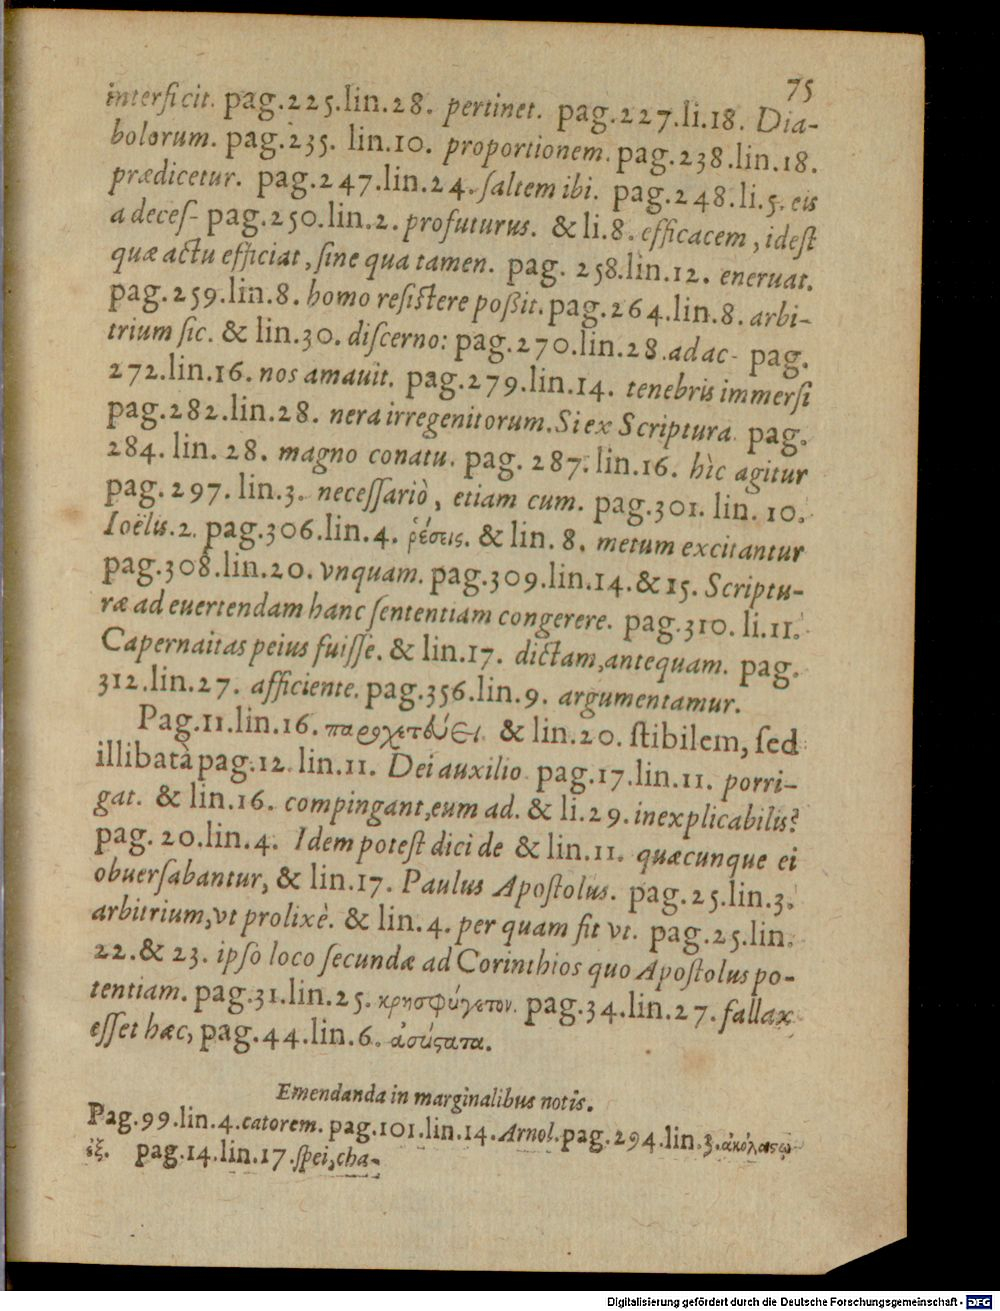 75
interficit. pag.225.lin.28. pertinet. pag.227.li.18. Dia-
bolorum. pag.235. lin.10. proportionem. pag.238.lin.18.
prædicetur. pag.247.lin.24. ſaltem ibi. pag.248.li.5. eis
a deceſ- pag.250.lin.2. profuturus. & li.8. efficacem, ideſt
quæ actu efficiat, ſine qua tamen. pag. 258.lin.12. eneruat.
pag.259.lin.8. homo reſiſtere poßit. pag.264.lin.8. arbi-
trium ſic. & lin.30. diſcerno: pag.270.lin.28. ad ac- pag.
272.lin.16. nos amauit. pag.279.lin.14. tenebris immerſi
pag.282.lin.28. nera irregenitorum. Si ex Scriptura. pag.
284. lin. 28. magno conatu. pag. 287. lin.16. hìc agitur
pag. 297. lin.3. neceſſariò, etiam cum. pag.301. lin. 10.
Ioëlis.2. pag.306.lin.4. ῥέσεις. & lin. 8. metum excitantur
pag.308.lin.20. vnquam. pag.309.lin.14.&15. Scriptu-
ræ ad euertendam hanc ſententiam congerere. pag.310. li.11.
Capernaitas peius fuiſſe. & lin.17. dictam, antequam. pag.
312.lin.27. afficiente. pag.356.lin.9. argumentamur.
Pag.11.lin.16. & lin.20. ſtibilem, ſed
illibatà pag.12. lin.11. Dei auxilio pag.17.lin.11. porri-
gat. & lin.16. compingant, eum ad. & li.29. inexplicabilis?
pag. 20.lin.4. Idem poteſt dici de & lin.11. quæcunque ei
obuerſabantur, & lin.17. Paulus Apoſtolus. pag.25.lin.3.
arbitrium, vt prolixè. & lin.4. per quam fit vt. pag.25.lin.
22.& 23. ipſo loco ſecundæ ad Corinthios quo Apoſtolus po-
tentiam. pag.31.lin.25. κρησφύγετον. pag.34.lin.27. fallax
eſſet hæc, pag.44.lin.6. ἀσύςατα.
Emendanda in marginalibus notis.
Pag.99.lin.4. catorem. pag.101.lin.14. Arnol. pag.294.lin.3.
ἐξ. pag.14.lin.17. ſpei, cha-
Digitalisierung gefördert durch die Deutsche Forschungsgemeinschaft - DFG